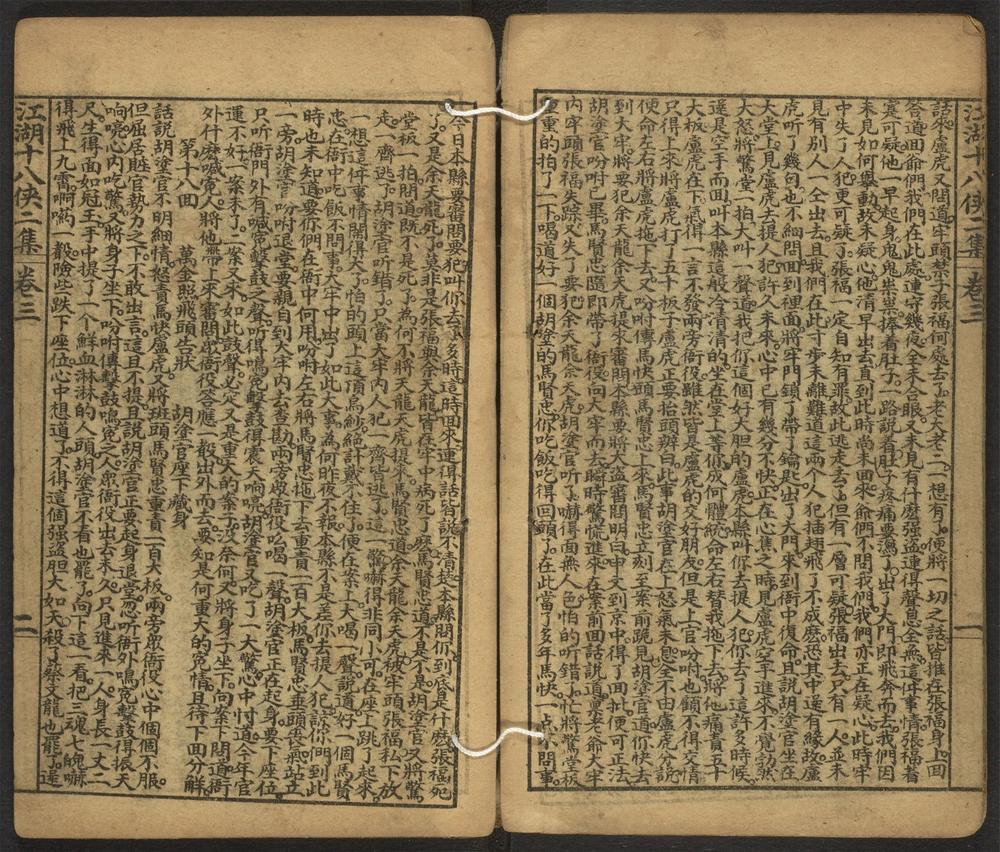 江湖十八俠二集 卷三 一
話來盧虎又問道牢頭禁子張福何處去了老大老二一想有了便將一切之話皆推在張福身上回
答道回爺們我們在此處連守幾夜全未合眼又未見有什麼强盗連得聲息全無這件事情張福看
寔可疑他一早起身鬼鬼祟祟捧着肚子一路說着肚子疼痛要瀉了出了大門即飛奔而去我們因
來見如何舉動故未疑心他清早出去直到此時尚未回來爺們不問我們我們亦正在疑心此時牢
中失了人犯更可疑了張福一定自知有罪故此逃走去了但有一層可疑張福出去只有一人並未
見有別人一仝出去且我們在此寸步未離難道這兩个人犯插翅飛了不成麼恐其中還有緣故盧
虎听了幾句也不細問回到裡面將牢門鎖了帶了鑰匙出了大門來到衙中復命且說胡塗官坐在
大堂上見盧虎去提人犯許久未來心中已有幾分不快正在心焦之時見盧虎空手進來不覺勃然
大怒將驚堂一拍大叫一聲道我把你這個好大胆的盧虎本縣叫你去提人犯你去了這許多時候
還是空手而回叫本縣這般冷清清的坐在堂上等你成何體統命左右替我拖下去將他痛責五十
大板盧虎在下氣得一言不發兩旁衙役雖然皆是盧虎的交好朋友但是上官吩咐也顧不得交情
只得上來將盧虎打了五十板子盧虎正要抬頭辦白此事胡塗官在上怒氣未息全不由盧虎分說
便命左右將盧虎拖下去又吩咐傳馬快頭馬賢忠上來馬賢忠立刻至案前跪見胡塗官道你快去
到大牢將要犯余天龍余天虎提來審問本縣要將大盗審問明白申文到京中得了回批便可正法
胡塗官吩咐已畢馬賢忠隨即帶了衙役向大牢而去瞬時驚慌進來在案前回話說道重老爺大牢
內牢頭張福失踪又失了要犯余天龍余天虎胡塗官听了嚇得面無人色怕的听錯了忙將驚堂板
重重的拍了一下喝道好一個胡塗的馬賢忠你吃飯吃得回頭了在此當了多年馬快一点不問事
今日本縣要審問要犯叫你去了多時這時回來連得話皆說不清楚本縣問你到底是什麼張福死
了又是余天龍死了莫非是張福與余天龍皆在牢中病死了麼馬賢忠道不是不是胡塗官又將驚
堂板一拍問道既不是死了為何不將天龍天虎提來馬賢忠道余天龍余天虎被牢頭張福私下放
走一齊逃了胡塗官听錯了只當大牢內人犯一齊皆逃了這一驚嚇得非同小可在座上跳了起來
一想這件事情鬧得大了怕的頭上這頂烏紗絕計戴不住了便在案上大喝一聲說道好一個馬賢
忠在衙中吃飯不問事大牢中出了如此大事為何昨夜不報本縣不是差你去提人犯諒你們到此
時也未知道要你們在衙中何用吩咐左右將馬賢忠拖下去重責一百大板馬賢忠垂頭丧氣將站立
一旁胡塗官吩咐退堂要親自到大牢內去查勘兩旁衙役吆喝一聲胡塗官正在起身要下座位
只听衙門外有喊寃擊鼓之聲听得鳴寃擊鼓得震天响哓胡塗官又吃了一大驚心中忖道今年官
運不好一案未了二案又來如此鼓聲必定又是重大的案子沒奈何又將身子坐下向案下問道衙
外什麼喊寃人將他帶上來審問眾衙役答應一聲出外而去要知是何重大的寃情且待下回分解
第十八回 萬金照飛頭告狀 胡塗官座下藏身
話說胡塗官不明細情怒責馬快盧虎又將班頭馬賢忠重責一百大板兩旁眾衙役心中個個不服
但屈居賍官勢力之下不敢出言這且不提且說胡塗官正要起身退堂忽听衙外鳴寃擊鼓得振天
响哓心內吃驚又將身子坐下吩咐傳擊鼓鳴寃之人眾衙役出去未久只見進來一人身長一丈二
尺生得面如冠玉手中提了一个鮮血淋淋的人頭胡塗官不看也罷了向下這一看把三魂七魄嚇
得飛上九霄啊喲一聲險些跌下座位心中想道了不得這個强盗胆大如天殺了蔡文龍也罷了還
江湖十八俠二集 卷三 二